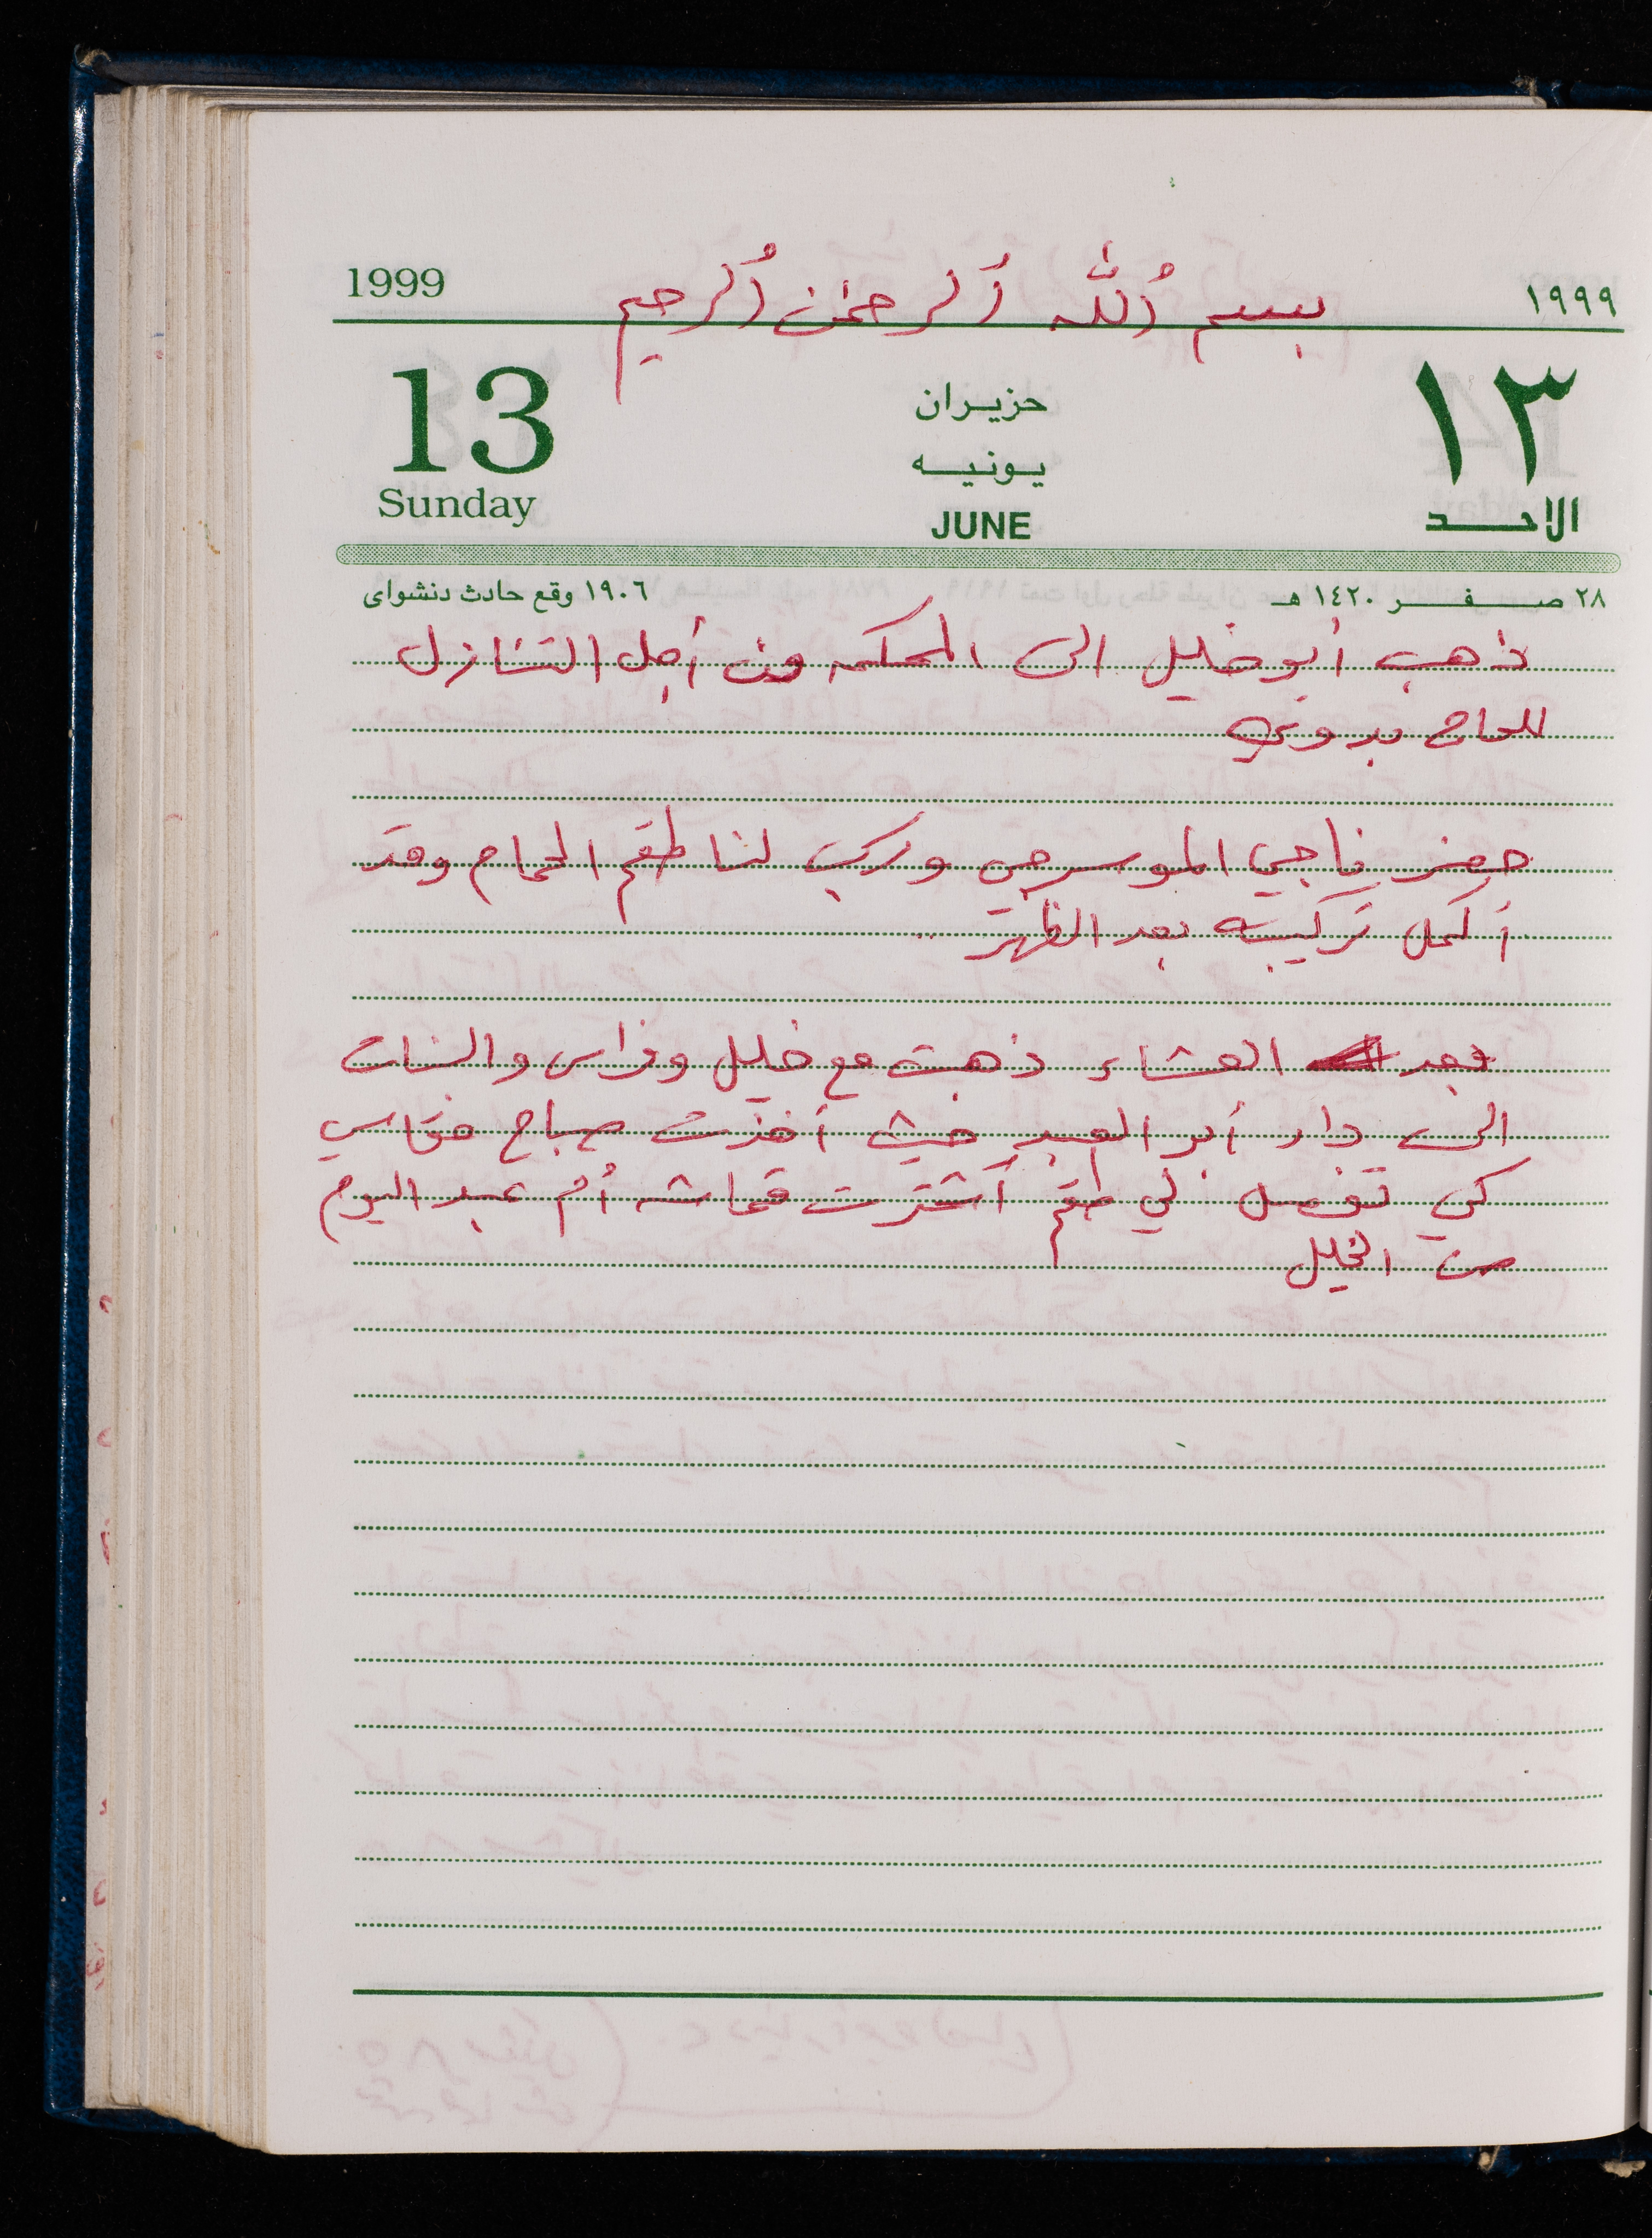 بسم الله الرحمن الرحيم
1999 ١٩٩٩
13 حزيران ١٣
يونيه
Sunday JUNE الاحد
٢٨ صفر ١٤٢٠ هـ ١٩٠٦ وقع حادث دنشواى
ذهب أبو خليل الى المحكمه من أجل التنازل
للحاج بدوي
حضر ناجي الموسرجي وركب لنا طقم الحمام وقد
أكمل تركيبه بعد الظهر ..
بعد العشاء ذهبت مع خليل وفراس والبنات
الى دار أبو العبد حيث أخذت صباح مقاسي
كي تفصل لي طقم أشترت قماشه أم عبد اليوم
من الخليل